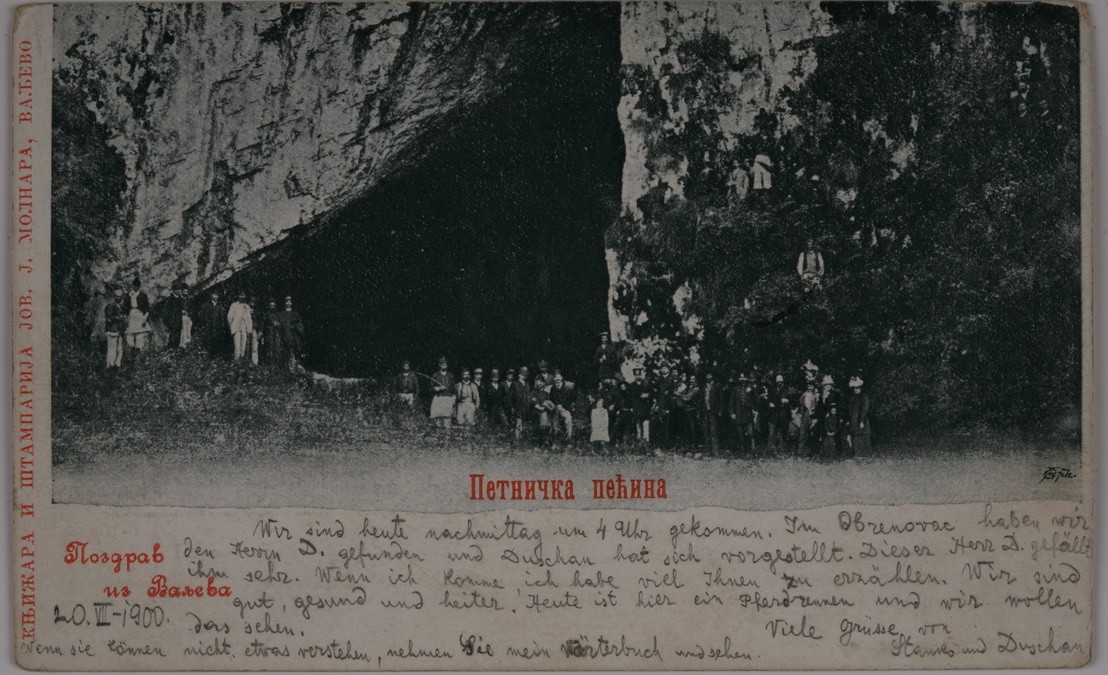 КЊИЖАРА И ШТАМПАРИЈА ЈОВ. Ј. МОЛНАРА, ВАЉЕВО
Петничка пећина
Поздрав
из Ваљева
20. VII-1900.
Wir sind heute nachmittag um 4 Uhr gekommen. Im Obrenovac haben wir
den Herrn D. gefunden und Duschan hat sich vorgestellt. Dieser Herr D. gefällt
ihm sehr. Wenn ich komme ich habe viel Ihnen zu erzählen. Wir sind
gut, gesund und heiter! Heute ist hier ein Pferdrennen und wir wollen
das sehen.
Viele grüsse von
Wenn sie können nicht, etwas verstehen, nehmen Sie mein Wörterbuch und sehen.
und Duschan